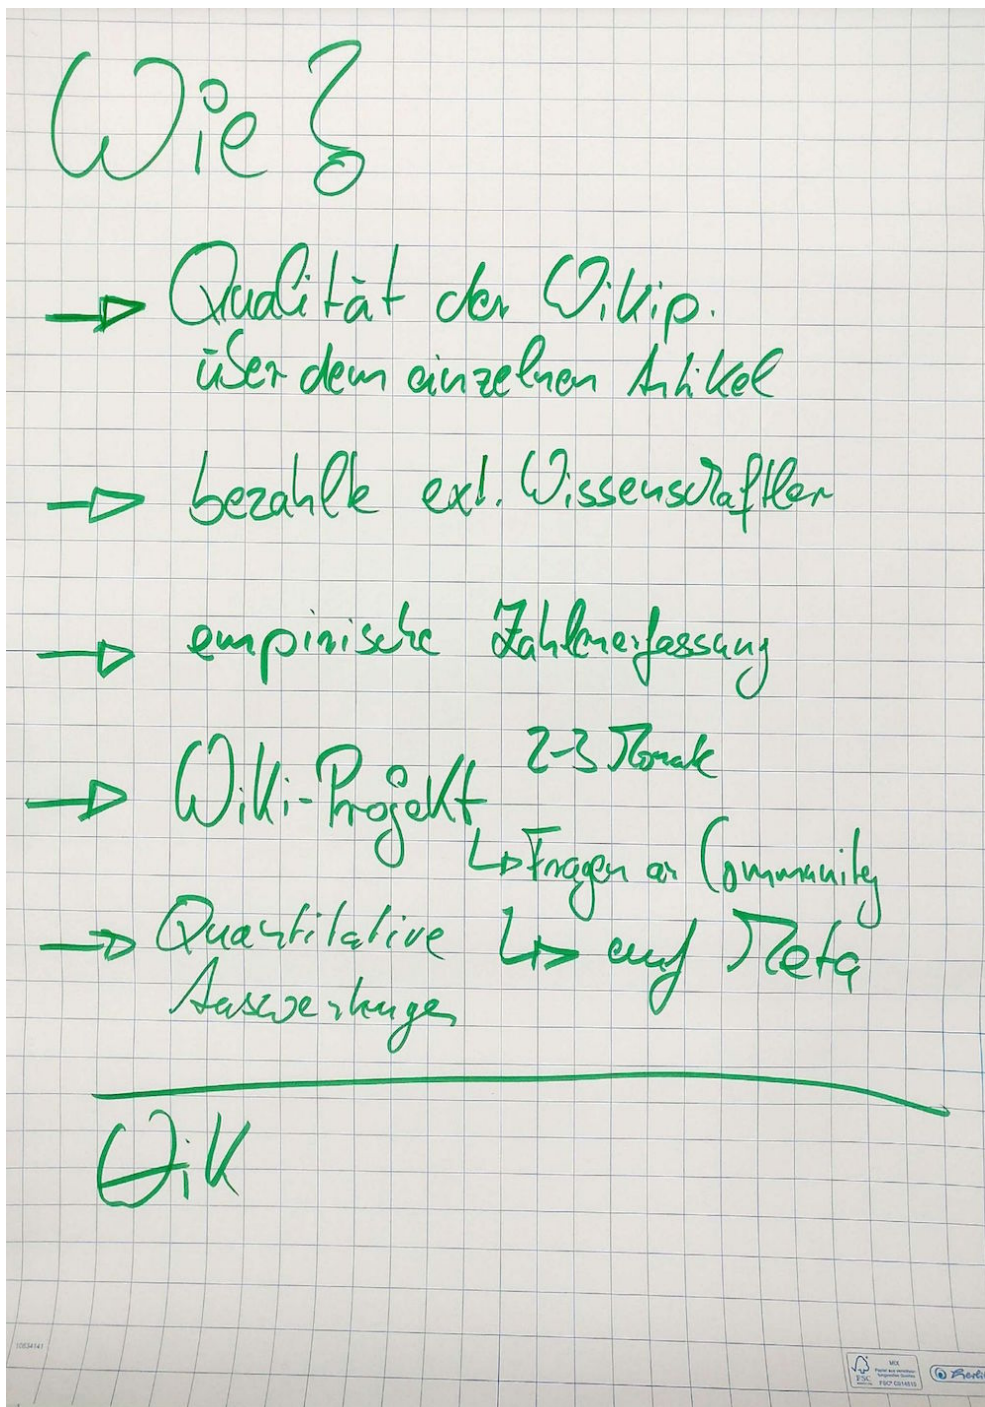 Wie?
→ Qualität der Wikip.
über dem einzelnen Artikel
→ bezahlte ext. Wissenschaftler
→ empirische Zahlenerfassung
→ Wiki-Projekt 2-3 Monate
↳ Fragen an Community
↳ auf Meta
→ Quantitative
Auswertungen
Wik
10634141
FSC
MIX
FSC® C014615